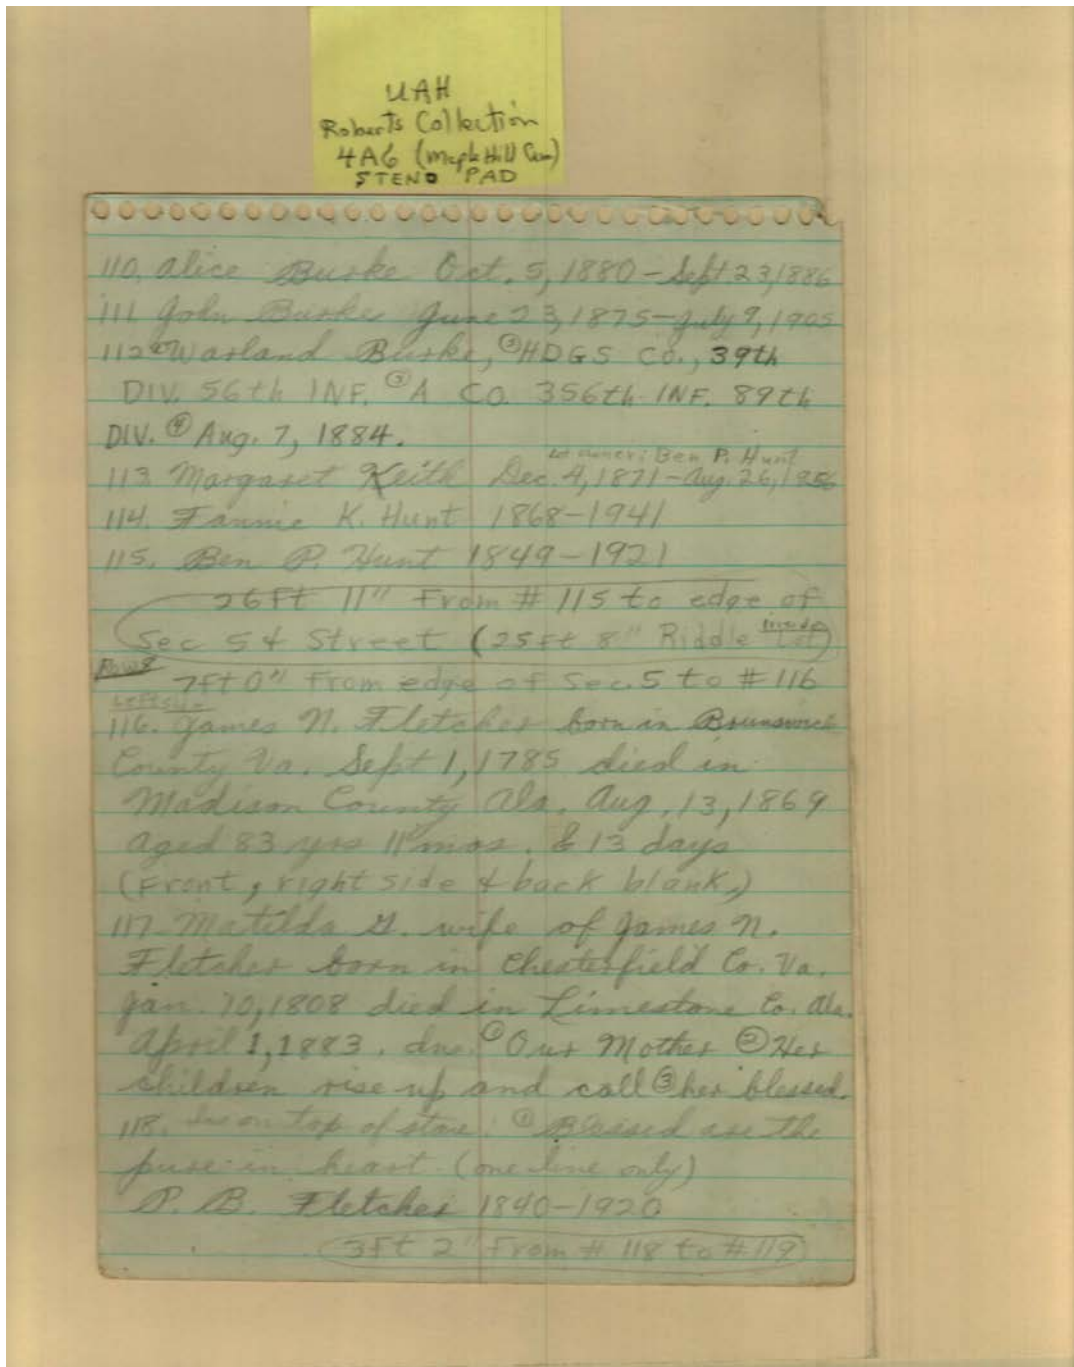 UAH
Roberts Collection
4A6 (Maple Hill Cem)
STENO PAD
110. Alice Burke Oct. 5, 1880 - Sept. 23, 1886
111. John Burke June 23, 1875 - July 9, 1905
112. Warland Burke, ② HDGS CO., 39th
DIV. 56th INF. ③ A CO. 356th INF. 89th
DIV. ④ Aug. 7, 1884.
Lot owner: Ben P. Hunt
113. Margaret Keith Dec. 4, 1871 - Aug. 26, 1956
114. Fannie K. Hunt 1868-1941
115. Ben P. Hunt 1849-1921
26 Ft 11" From # 115 to edge of
Sec 5 & Street (25 Ft 8" Riddle inside Lot)
Row 8
7 ft 0" From edge of Sec. 5 to # 116
Left side
116. James N. Fletcher born in Brunswick
County Va. Sept 1, 1785 died in
Madison County Ala. Aug. 13, 1869
aged 83 yrs 11 mos. & 13 days
(Front, right side & back blank.)
117. Matilda G. wife of James N.
Fletcher born in Chesterfield Co. Va.
Jan. 10, 1808 died in Limestone Co. Ala.
April 1, 1883. ins. ① Our Mother ② Her
children rise up and call ③ her blessed.
118. ins on top of stone: ① Blessed are the
pure in heart (one line only)
P. B. Fletcher 1840-1920
3 Ft 2" From # 118 to # 119